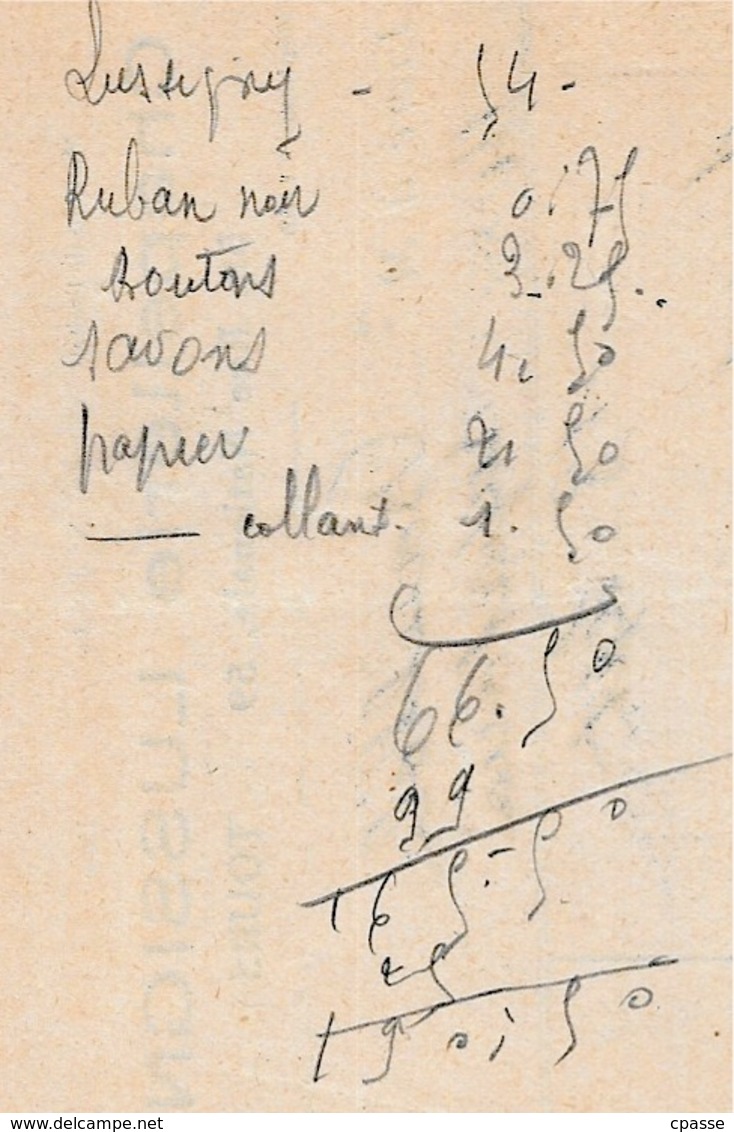 - 54 -
Ruban noir 0.75
Boutons 3.25
savons 4.50
papier 2.50
— collant. 1.50
66.50
99
165.50
25
190.50
www.delcampe.net
cpasse